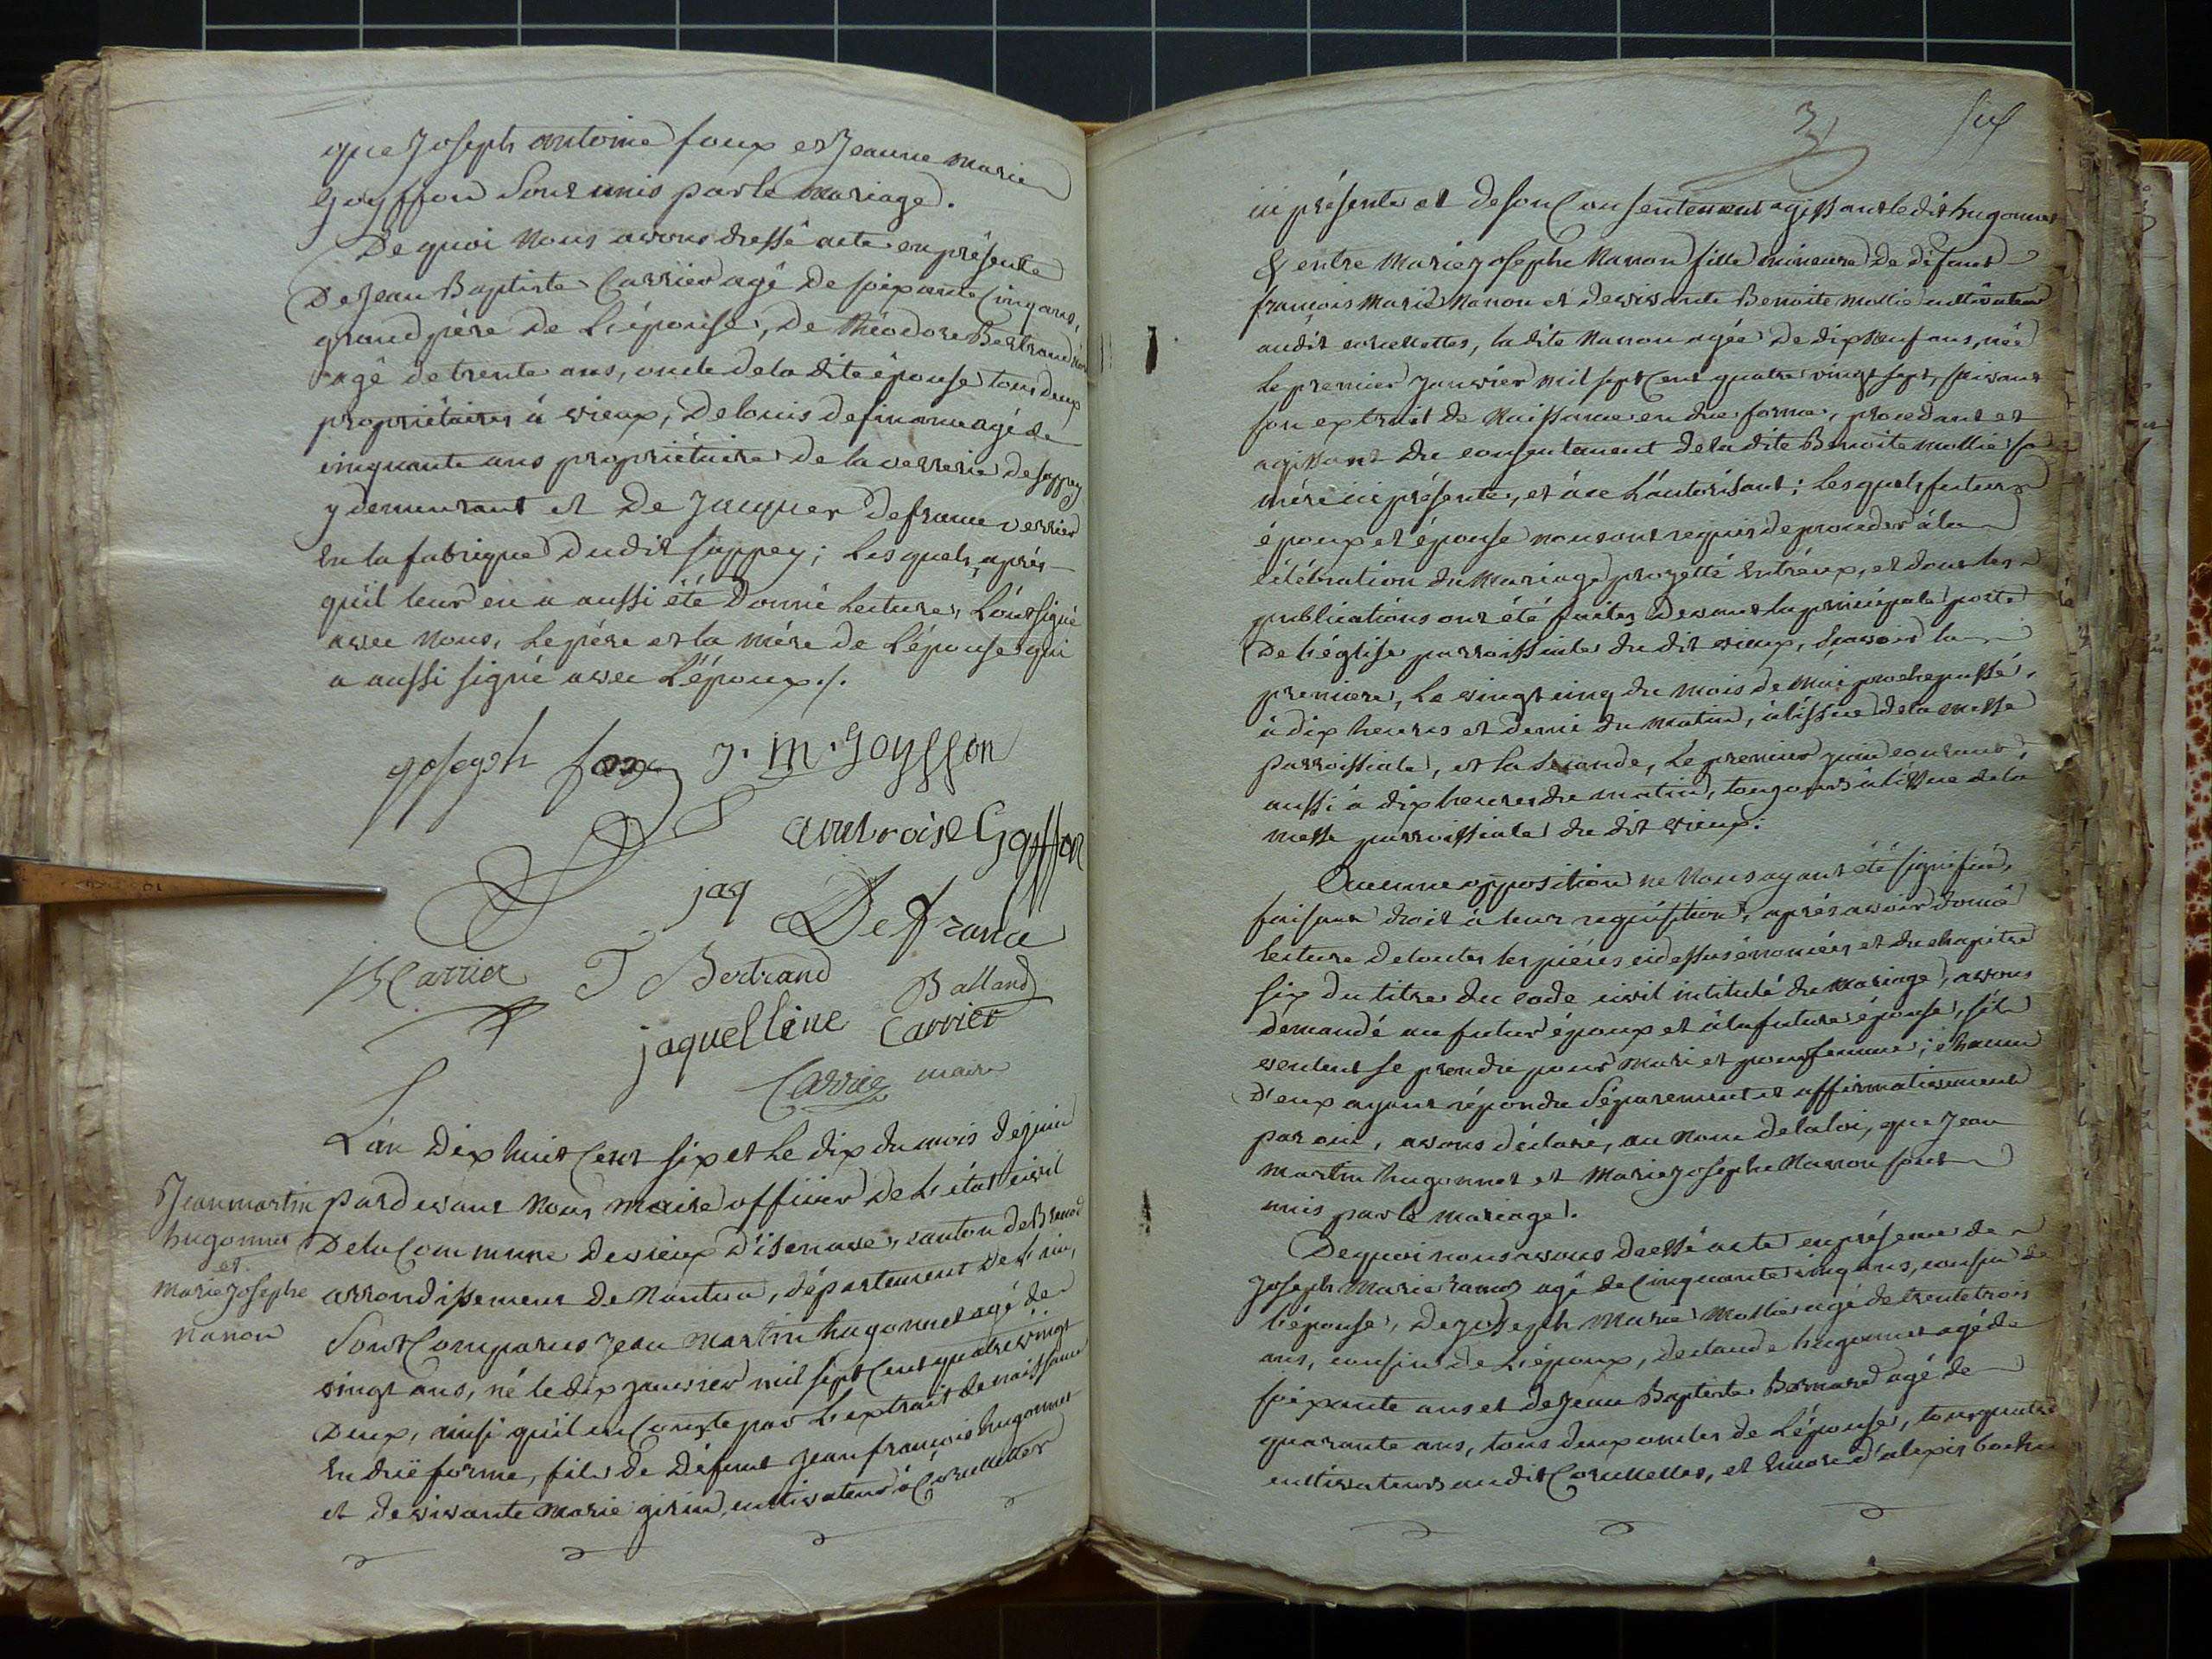 que Joseph antoine foux et Jeanne marie
Goyffon Sont unis par le mariage.
De quoi Nous avons dressé acte en présente
De Jean Baptiste Carrier agé De soixante Cinq ans,
grand père De L'épouse, De théodore Bertrand
agé de trente ans, oncle de la dite épouse tous deux
propriétaires à vieux, De louis definance agé de
cinquante ans propriétaire De la verrerie de sappey
y demeurant et De Jacques Defrance verrier
En la fabrique Dudit sappey; Lesquels, après
qu'il leur en a aussi été Donné Lecture, L'ont signé
avec Nous, Le père et la mère De L'épouse qui
a aussi signé avec L'époux ./.
joseph foux J. m. Goyffon
ambroise Goyffon
jaq Defrance
JB Carrier T Bertrand Balland
jaquelline Carrier
Carrier maire
L'an Dix huit Cent six et Le dix du mois de juin
par devant Nous maire officier De L'état civil
De la Commune De vieux d'isenave, canton de Brenod
arrondissement De Nantua, département De L'ain,
Sont Comparus Jean martin hugonnet agé de
vingt ans, né le dix janvier mil sept Cent quatre vingt
Deux, ainsi qu'il en Conste par L'extrait de naissance
En düe forme, fils De Défunt Jean françois hugonnet
et De vivante Marie girin, cultivateur à Corcelettes
Jean martin
hugonnet
et
Marie Josephe
Nanon
3 six
ici présente et De son Consentement agissant le dit hugonnet
& entre Marie Josephe Nanon fille mineure De défunt
françois Marie Nanon et De vivante Benoite Mollie cultivateur
audit corcelettes, la dite Nanon agée De dix neuf ans, née
Le premier Janvier mil sept Cent quatre vingt sept, suivant
son extrait De Naissance en due forme, procédant et
agissant Du consentement De la dite Benoite mollie sa
mère ici présente, et à ce L'autorisant; Lesquels futurs
époux et épouse nous ont requis de procéder à la
célébration du Mariage projetté Entr'eux, et dont les
publications ont été faites Devant la principale porte
De L'église parroissiale du dit vieux, sçavoir la
premiere, Le vingt cinq du mois de mai proche passé,
à dix heures et demi du matin, à l'issue de la messe
parroissiale, et la seconde, Le premier juin courant,
aussi à dix heures du matin, toujours à l'issue de la
messe parroissiale du dit vieux.
Aucune opposition ne Nous ayant été signifiée,
faisant droit à leur requisition, après avoir donné
lecture De toutes les pièces ci dessus énoncées et du chapitre
six du titre du code civil intitulé du Mariage, avons
demandé au futur époux et à la future épouse, s'ils
veulent se prendre pour Mari et pour femme; chacun
D'eux ayant répondu Séparement et affirmativement
par oui, avons déclaré, au Nom de la loi, que Jean
martin hugonnet et Marie Josephe Nanon sont
unis par le Mariage.
De quoi nous avons dressé acte en présence de
Joseph Marie agé de Cinquante cinq ans, cousin de
L'épouse, De joseph Marie Mollie agé de trente trois
ans, cousin de L'époux, de claude hugonnet agé de
soixante ans et de Jean Baptiste Bernard agé de
quarante ans, tous deux oncles de L'épouse, tous quatre
cultivateurs audit Corcelettes, et Encore d'alexis